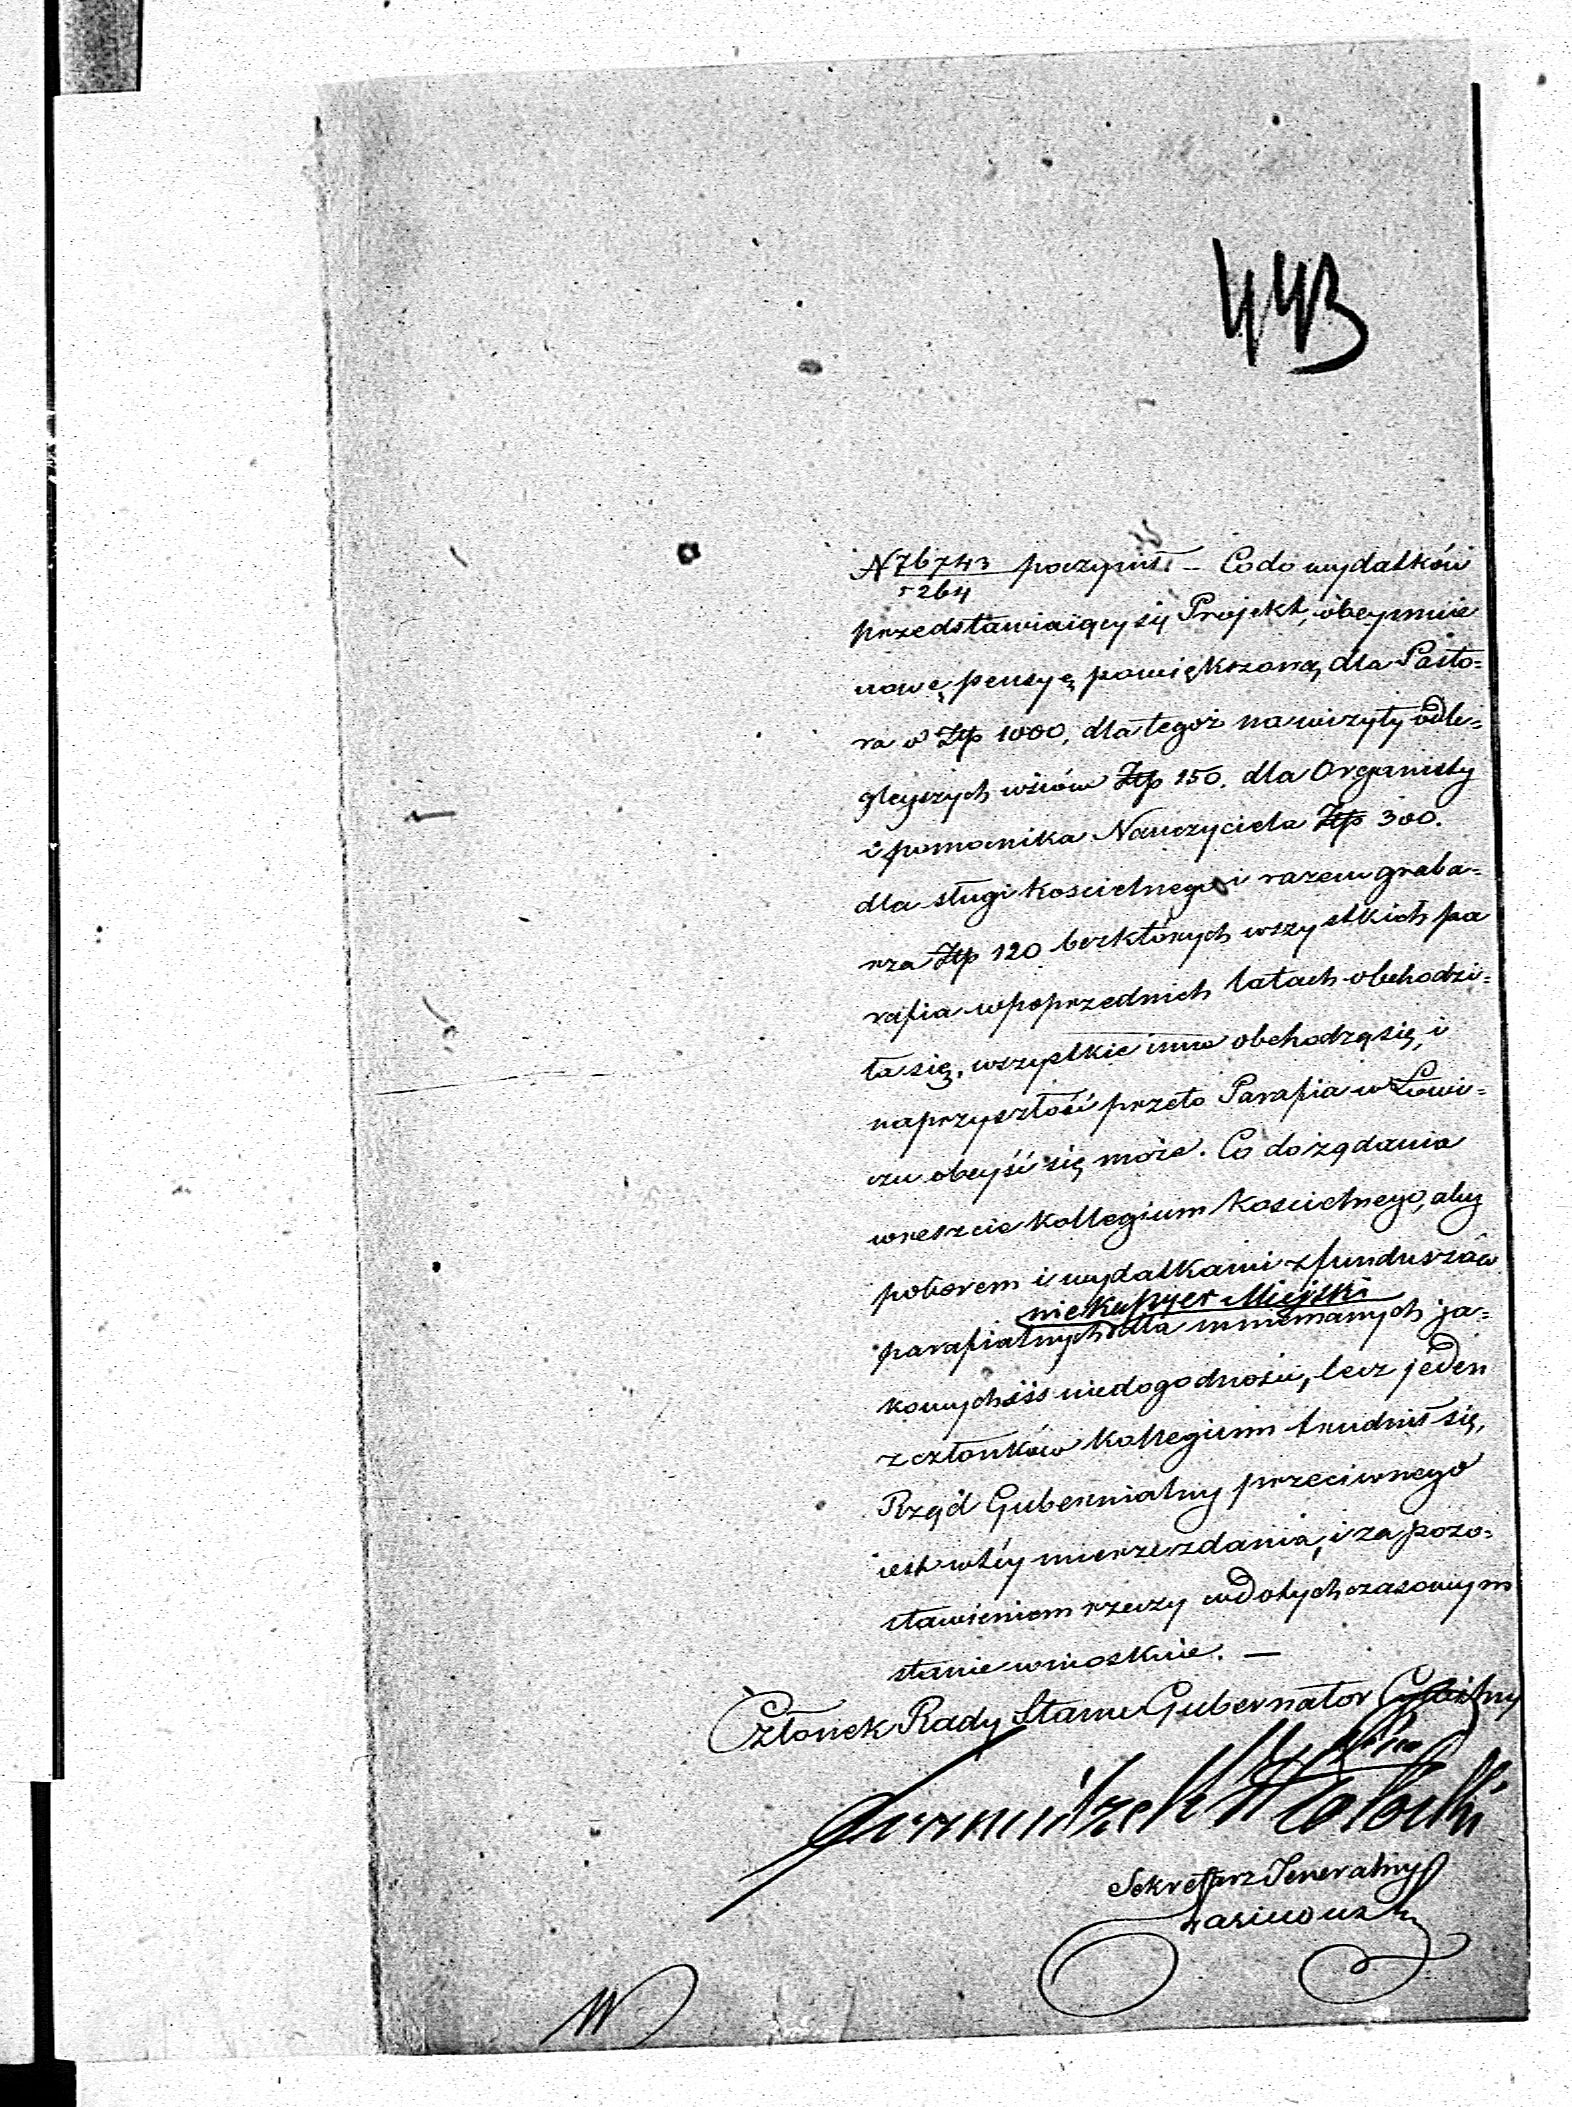 443
N 76743/5264 poczynił. – Co do wydatków
przedstawiaiący się Projekt, obeymuie
nowę pensyę powiększoną dla Pasto=
ra w Złp 1000, dla tegoż na wizyty odle=
gleyszych wsiów Złp 150. dla Organisty
i pomocnika Nauczyciela Złp 300.
dla sługi kościelnego i razem graba=
rza Złp 120 bez których wszystkich pa
rafia w poprzednich latach obchodzi=
ła się, wszystkie inne obchodzą się, i
na przyszłość przeto Parafia w Łowi=
czu obeyść się może. Co do żądania
wreszcie Kollegium Kościelnego, aby
poborem i wydatkami z funduszów
nie Kassyer Mieyski
parafialnych dla mniemanych ja=
kowychśiś niedogodności, lecz jeden
z członków Kollegium trudnił się,
Rząd Gubernialny przeciwnego
iest w téy mierze zdania, i za pozo=
stawieniem rzeczy w dotychczasowym
stanie wnioskuie. —
Członek Rady Stanu Gubernator Cywilny
Sekretarz Jeneralny